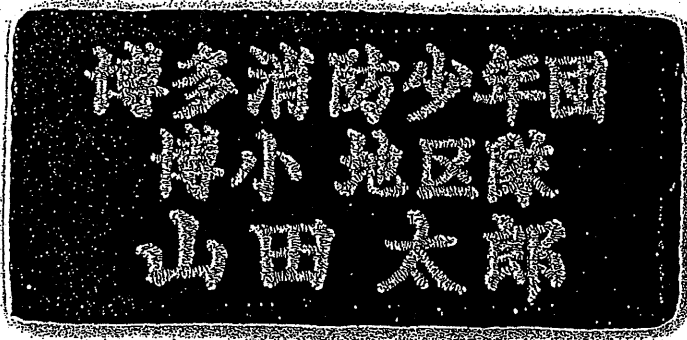 博多消防少年団
博小 地区隊
山田 太郎